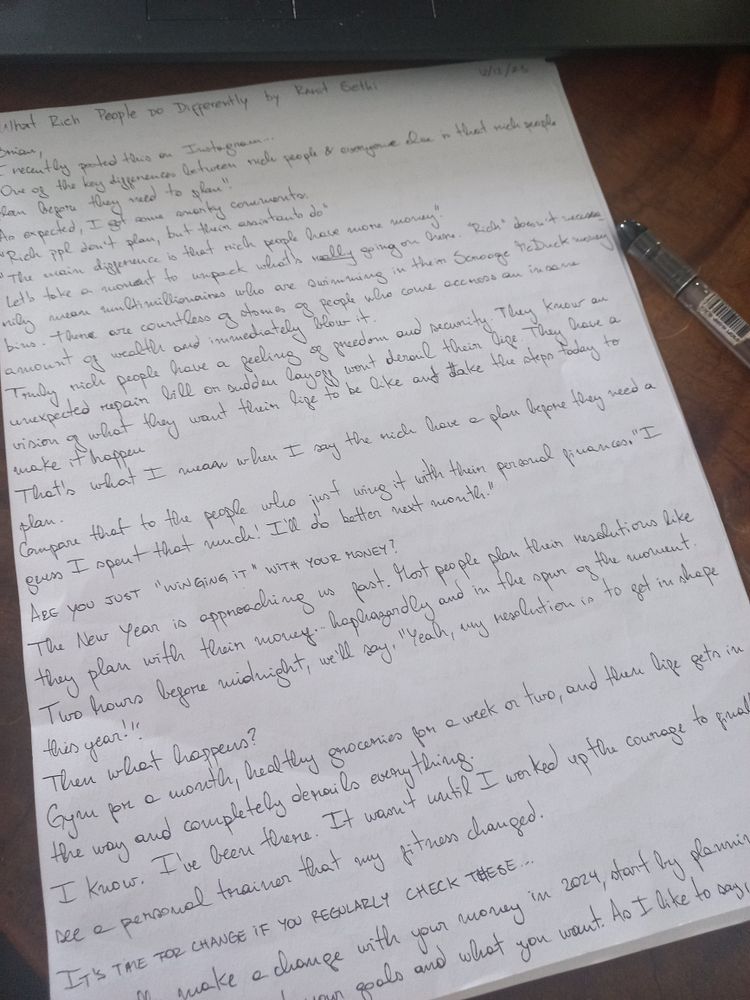 12/12/23
What Rich People Do Differently by Ramit Sethi
Brian,
I recently posted this on Instagram...
"One of the key differences between rich people & everyone else is that rich people
plan before they need to plan".
As expected, I got some snarky comments.
"Rich ppl don't plan, but their assistants do"
"The main difference is that rich people have more money".
Let's take a moment to unpack what's really going on here. "Rich" doesn't necessa-
rily mean multimillionaires who are swimming in their Scrooge McDuck money
bins. There are countless of stories of people who come accross an insane
amount of wealth and immediately blow it.
Truly rich people have a feeling of freedom and security. They know an
unexpected repair bill or sudden layoff wont derail their life. They have a
vision of what they want their life to be like and take the steps today to
make it happen
That's what I mean when I say the rich have a plan before they need a
plan.
Compare that to the people who just wing it with their personal finances. "I
guess I spent that much! I'll do better next month."
ARE YOU JUST "WINGING IT" WITH YOUR MONEY?
The New Year is approaching us fast. Most people plan their resolutions like
they plan with their money... haphazardly and in the spur of the moment.
Two hours before midnight, we'll say, "Yeah, my resolution is to get in shape
this year!"
Then what happens?
Gym for a month, healthy groceries for a week or two, and then life gets in
the way and completely derails everything.
I know. I've been there. It wasn't until I worked up the courage to finall
see a personal trainer that my fitness changed.
IT'S TIME FOR CHANGE IF YOU REGULARLY CHECK THESE...
make a change with your money in 2024, start by plannin
your goals and what you want. As I like to say,